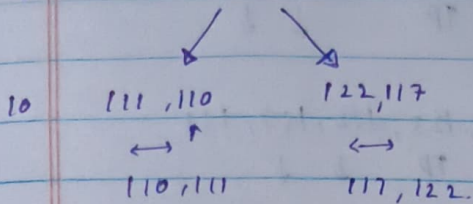 10 111 , 110 122, 117
110 , 111 117 , 122.